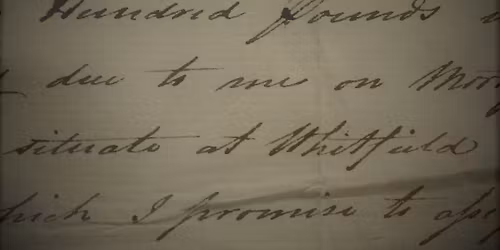 Hundred Pounds
due to me on Mor
situate at Whitfield
which I promise to ass